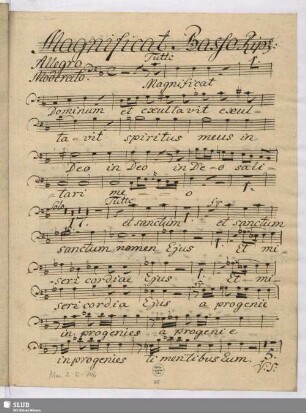 Magnificat. Basso Rip:
Allegro Tutti 1.
Moderato.
Magnificat
Dominum et exultavit exul-
ta-vit spiritus meus in
Deo in Deo in De-o sali-
tari me-o 1.
Solo Tutti
7. et sanctum 1. et sanctum
sanctum nomen Ejus Et mi
sericordiae Ejus 1. Et mi
sericordia Ejus a progenie
in progenies a progenie
in progenies timentibus Eum.
V:S:
SLUB